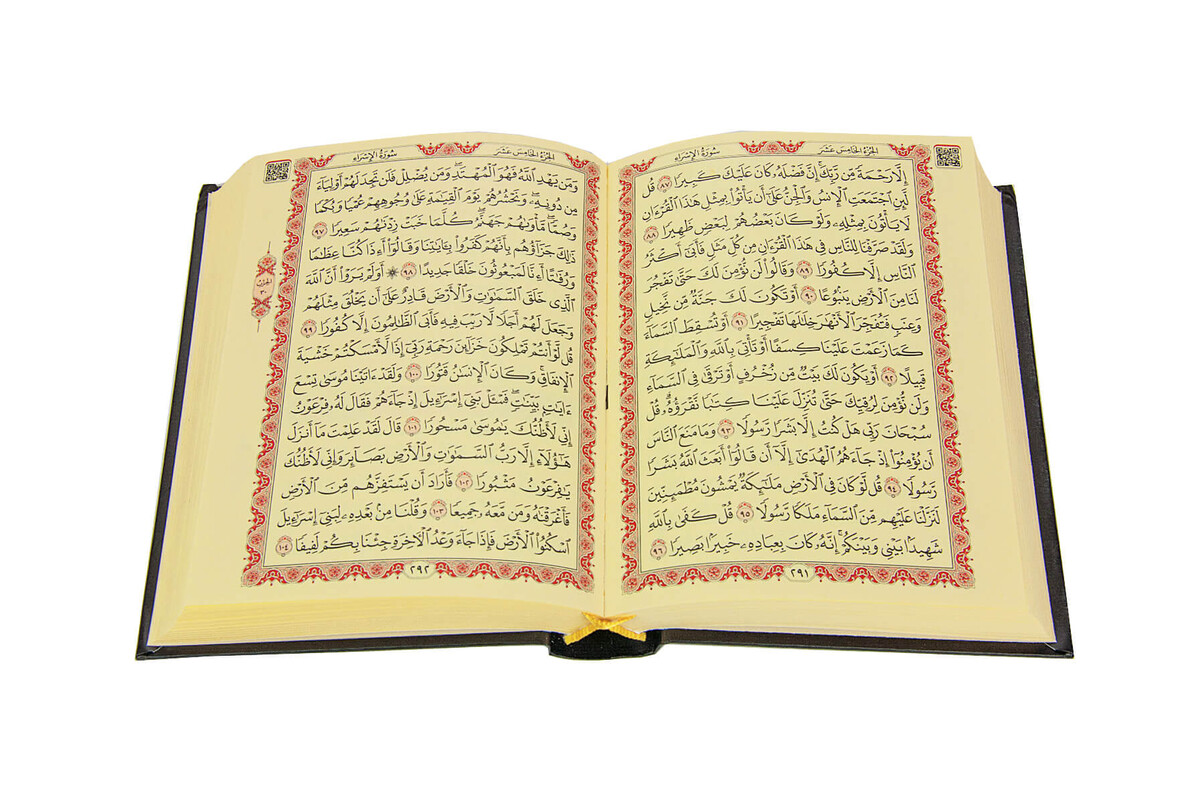 الجزء الخامس عشر
سورة الإسراء
إِلَّا رَحْمَةً مِّن رَّبِّكَ ۚ إِنَّ فَضْلَهُۥ كَانَ عَلَيْكَ كَبِيرًا ٨٧ قُل
لَّئِنِ ٱجْتَمَعَتِ ٱلْإِنسُ وَٱلْجِنُّ عَلَىٰٓ أَن يَأْتُوا۟ بِمِثْلِ هَٰذَا ٱلْقُرْءَانِ
لَا يَأْتُونَ بِمِثْلِهِۦ وَلَوْ كَانَ بَعْضُهُمْ لِبَعْضٍ ظَهِيرًا ٨٨
وَلَقَدْ صَرَّفْنَا لِلنَّاسِ فِى هَٰذَا ٱلْقُرْءَانِ مِن كُلِّ مَثَلٍ فَأَبَىٰٓ أَكْثَرُ
ٱلنَّاسِ إِلَّا كُفُورًا ٨٩ وَقَالُوا۟ لَن نُّؤْمِنَ لَكَ حَتَّىٰ تَفْجُرَ
لَنَا مِنَ ٱلْأَرْضِ يَنۢبُوعًا ٩٠ أَوْ تَكُونَ لَكَ جَنَّةٌ مِّن نَّخِيلٍ
وَعِنَبٍ فَتُفَجِّرَ ٱلْأَنْهَٰرَ خِلَٰلَهَا تَفْجِيرًا ٩١ أَوْ تُسْقِطَ ٱلسَّمَآءَ
كَمَا زَعَمْتَ عَلَيْنَا كِسَفًا أَوْ تَأْتِىَ بِٱللَّهِ وَٱلْمَلَٰٓئِكَةِ
قَبِيلًا ٩٢ أَوْ يَكُونَ لَكَ بَيْتٌ مِّن زُخْرُفٍ أَوْ تَرْقَىٰ فِى ٱلسَّمَآءِ
وَلَن نُّؤْمِنَ لِرُقِيِّكَ حَتَّىٰ تُنَزِّلَ عَلَيْنَا كِتَٰبًا نَّقْرَؤُهُۥ ۗ قُلْ
سُبْحَانَ رَبِّى هَلْ كُنتُ إِلَّا بَشَرًا رَّسُولًا ٩٣ وَمَا مَنَعَ ٱلنَّاسَ
أَن يُؤْمِنُوٓا۟ إِذْ جَآءَهُمُ ٱلْهُدَىٰٓ إِلَّآ أَن قَالُوٓا۟ أَبَعَثَ ٱللَّهُ بَشَرًا
رَّسُولًا ٩٤ قُل لَّوْ كَانَ فِى ٱلْأَرْضِ مَلَٰٓئِكَةٌ يَمْشُونَ مُطْمَئِنِّينَ
لَنَزَّلْنَا عَلَيْهِم مِّنَ ٱلسَّمَآءِ مَلَكًا رَّسُولًا ٩٥ قُلْ كَفَىٰ بِٱللَّهِ
شَهِيدًۢا بَيْنِى وَبَيْنَكُمْ ۚ إِنَّهُۥ كَانَ بِعِبَادِهِۦ خَبِيرًۢا بَصِيرًا ٩٦
٢٩١
الجزء الخامس عشر
سورة الإسراء
وَمَن يَهْدِ ٱللَّهُ فَهُوَ ٱلْمُهْتَدِ ۖ وَمَن يُضْلِلْ فَلَن تَجِدَ لَهُمْ أَوْلِيَآءَ
مِن دُونِهِۦ ۖ وَنَحْشُرُهُمْ يَوْمَ ٱلْقِيَٰمَةِ عَلَىٰ وُجُوهِهِمْ عُمْيًا وَبُكْمًا
وَصُمًّا ۖ مَّأْوَىٰهُمْ جَهَنَّمُ ۖ كُلَّمَا خَبَتْ زِدْنَٰهُمْ سَعِيرًا ٩٧
ذَٰلِكَ جَزَآؤُهُم بِأَنَّهُمْ كَفَرُوا۟ بِـَٔايَٰتِنَا وَقَالُوٓا۟ أَءِذَا كُنَّا عِظَٰمًا
وَرُفَٰتًا أَءِنَّا لَمَبْعُوثُونَ خَلْقًا جَدِيدًا ٩٨ ۞ أَوَلَمْ يَرَوْا۟ أَنَّ ٱللَّهَ
ٱلَّذِى خَلَقَ ٱلسَّمَٰوَٰتِ وَٱلْأَرْضَ قَادِرٌ عَلَىٰٓ أَن يَخْلُقَ مِثْلَهُمْ
وَجَعَلَ لَهُمْ أَجَلًا لَّا رَيْبَ فِيهِ فَأَبَى ٱلظَّٰلِمُونَ إِلَّا كُفُورًا ٩٩
قُل لَّوْ أَنتُمْ تَمْلِكُونَ خَزَآئِنَ رَحْمَةِ رَبِّىٓ إِذًا لَّأَمْسَكْتُمْ خَشْيَةَ
ٱلْإِنفَاقِ ۚ وَكَانَ ٱلْإِنسَٰنُ قَتُورًا ١٠٠ وَلَقَدْ ءَاتَيْنَا مُوسَىٰ تِسْعَ
ءَايَٰتٍۭ بَيِّنَٰتٍ ۖ فَسْـَٔلْ بَنِىٓ إِسْرَٰٓءِيلَ إِذْ جَآءَهُمْ فَقَالَ لَهُۥ فِرْعَوْنُ
إِنِّى لَأَظُنُّكَ يَٰمُوسَىٰ مَسْحُورًا ١٠١ قَالَ لَقَدْ عَلِمْتَ مَآ أَنزَلَ
هَٰٓؤُلَآءِ إِلَّا رَبُّ ٱلسَّمَٰوَٰتِ وَٱلْأَرْضِ بَصَآئِرَ وَإِنِّى لَأَظُنُّكَ
يَٰفِرْعَوْنُ مَثْبُورًا ١٠٢ فَأَرَادَ أَن يَسْتَفِزَّهُم مِّنَ ٱلْأَرْضِ
فَأَغْرَقْنَٰهُ وَمَن مَّعَهُۥ جَمِيعًا ١٠٣ وَقُلْنَا مِنۢ بَعْدِهِۦ لِبَنِىٓ إِسْرَٰٓءِيلَ
ٱسْكُنُوا۟ ٱلْأَرْضَ فَإِذَا جَآءَ وَعْدُ ٱلْءَاخِرَةِ جِئْنَا بِكُمْ لَفِيفًا ١٠٤
٢٩٢
الحزب
٣٠